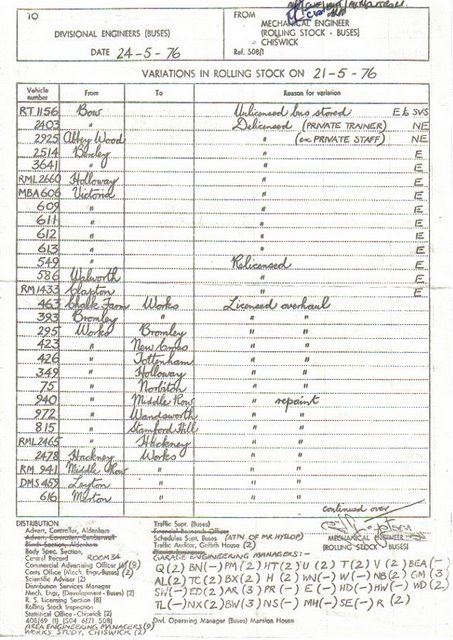 TO
DIVISIONAL ENGINEERS (BUSES)
DATE 24-5-76
FROM
MECHANICAL ENGINEER
(ROLLING STOCK - BUSES)
CHISWICK
Ref. 508/1
VARIATIONS IN ROLLING STOCK ON 21-5-76
Vehicle number From To Reason for variation
RT 1156 Bow Unlicensed bus stored E & SVS
2403 " Delicensed (PRIVATE TRAINER) NE
2925 Abbey Wood " (ex PRIVATE STAFF) NE
2514 Bexley " E
3641 " " E
RML 2660 Holloway " E
MBA 606 Victoria " E
609 " " E
611 " " E
612 " " E
613 " " E
549 " Relicensed E
586 Walworth " E
RM 1433 Clapton " E
463 Chalk Farm Works Licensed overhaul
393 Bromley " " "
295 Works Bromley " "
423 " New Cross " "
426 " Tottenham " "
349 " Holloway " "
75 " Norbiton " "
940 " Middle Row " repaint
972 " Wandsworth " "
815 " Stamford Hill " "
RML 2465 " Hackney " "
2478 Hackney Works " "
RM 941 Middle Row " " "
DMS 459 Leyton " " "
616 Merton " " "
continued over
MECHANICAL ENGINEER
(ROLLING STOCK - BUSES)
DISTRIBUTION
Advert. Controller, Aldenham
Advert. Controller, Camberwell
Body Spec. Section,
Central Record ROOM 34
Commercial Advertising Office (8)
Costs Office (Mech. Engr. Buses) (2)
Scientific Adviser (2)
Distribution Services Manager
Mech. Engr. (Development - Buses) (2)
R. S. Licensing Section (8)
Rolling Stock Inspection
Statistical Office - Chiswick (2)
408/69 (1) 504 6/71 508
AREA ENGINEERING MANAGERS (9)
WORKS STUDY, CHISWICK (2)
Traffic Supt. (Buses)
Financial Research Officer
Schedules Supt. Buses (ATTN OF MR. HYSLOP)
Traffic Auditor, Griffith House (2)
GARAGE ENGINEERING MANAGERS:-
Q (2) BN (-) PM (2) HT (2) U (2) T (2) V (2) BEA (-)
AL (2) TC (2) BX (2) H (2) WN (-) W (-) NB (2) GM (3)
SW (-) ED (2) AR (3) PR (-) E (-) HD (-) HW (-) WD (2)
TL (-) NX (2) BW (3) NS (-) MH (-) SE (-) R (2)
Divl. Operating Manager (Buses) Mansion House